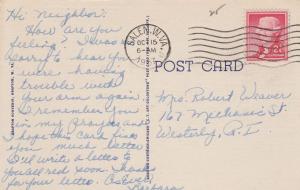 Hi Neighbor:
How are you
feeling? I was
sorry to hear
you were having
troubles with
your arm again.
I remember you
in my prayers
I hope this card finds
you much better
will write a letter to
you all real soon. Thanks
for your letter. As Ever
Barbara
SALEM, VA.
OCT 15
6-PM
2¢
POST CARD
Mrs. Robert Weaver
167 Mechanic St
Westerly, R.I